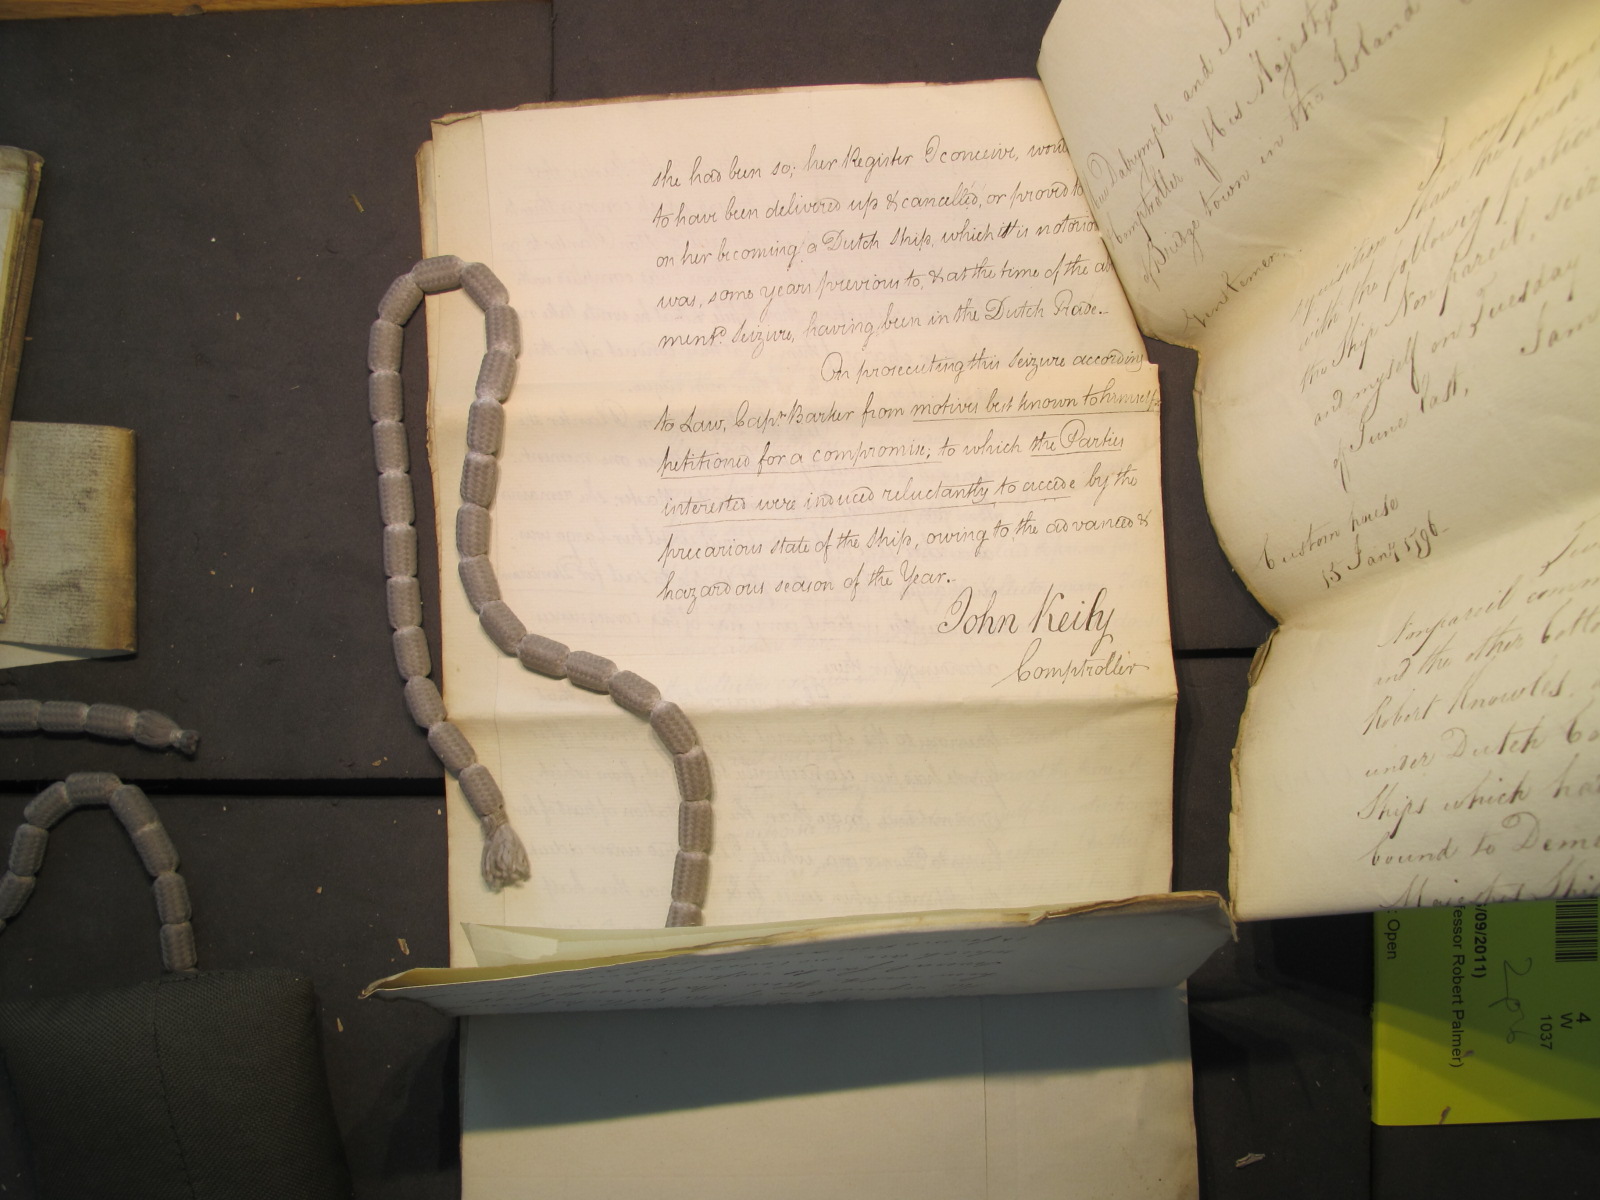 she had been so; her Register I conceive, woul
to have been delivered up & cancelled, or proved to
on her becoming a Dutch Ship, which it is notorio
was, some years previous to, & at the time of the ab
mentd. seizure, having been in the Dutch Trade.
On prosecuting this seizure according
to Law, Capr. Barker from motives best known to himself,
petitioned for a compromise; to which the Parties
interested were induced reluctantly to accede by the
precarious state of the Ship, owing to the advanced &
hazardous season of the Year.
John Keily
Comptroller
Dalrymple and John
Comptroller of His Majestys
of Bridge town in the Island
with the following particu
the Ship Nonpareil, seiz
and myself on Tuesday
of June last,
I am
Custom house
15 Jany. 1796
Nonpareil comm
and the other bott
Robert Knowles,
under Dutch Co
Ships which ha
bound to Deme
/09/2011)
fessor Robert Palmer)
: Open
206
4
W
1037